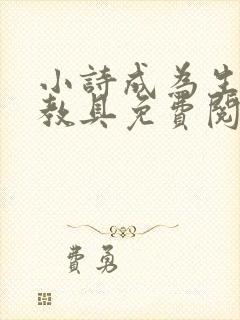 小詩成為生
教具免費閱
費勇